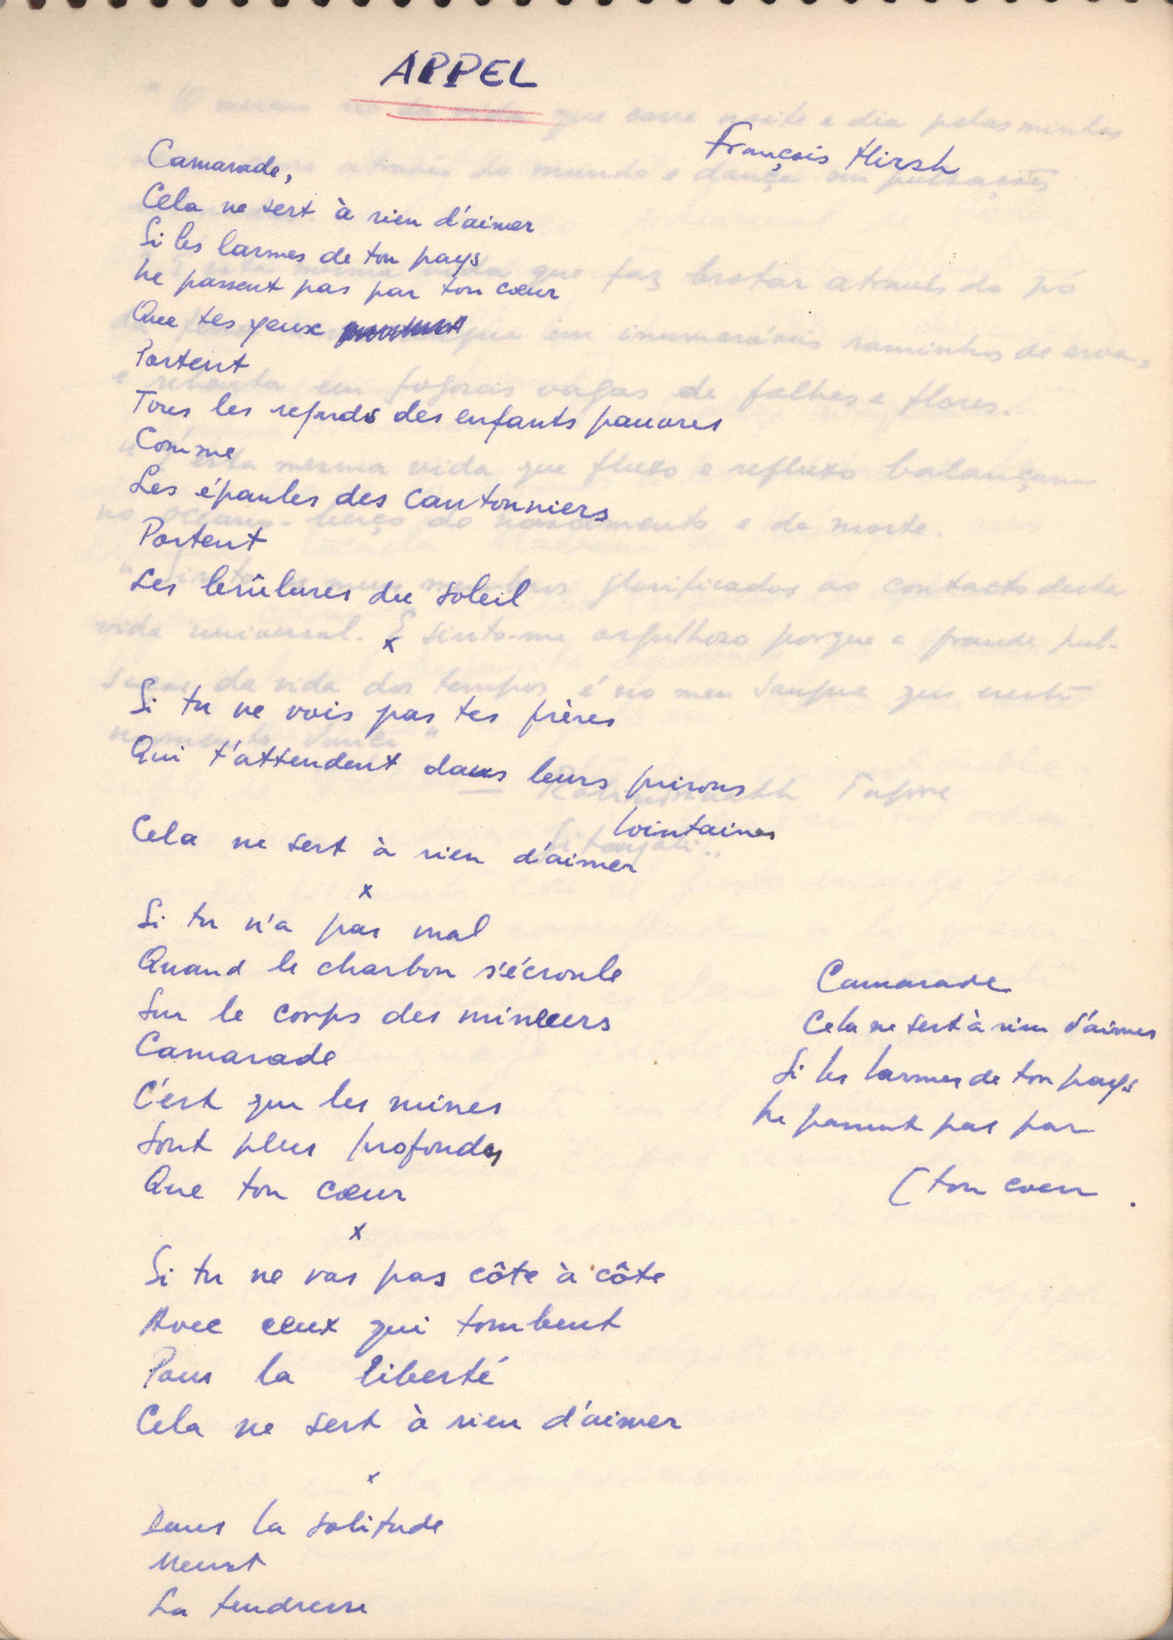 APPEL
François Hirsh
Camarade,
Cela ne sert à rien d'aimer
Si les larmes de ton pays
Ne passent pas par ton cœur
Que tes yeux
Portent
Tous les regards des enfants pauvres
Comme
Les épaules des cantonniers
Portent
Les brûlures du soleil
x
Si tu ne vois pas tes frères
Qui t'attendent dans leurs prisons
lointaines
Cela ne sert à rien d'aimer
x
Si tu n'a pas mal
Quand le charbon s'écroule
Sur le corps des mineurs
Camarade
C'est que les mines
Sont plus profondes
Que ton cœur
x
Si tu ne vas pas côte à côte
Avec ceux qui tombent
Pour la liberté
Cela ne sert à rien d'aimer
x
Dans la solitude
Meurt
La tendresse
Camarade
Cela ne sert à rien d'aimer
Si les larmes de ton pays
Ne passent pas par
(ton coeur.